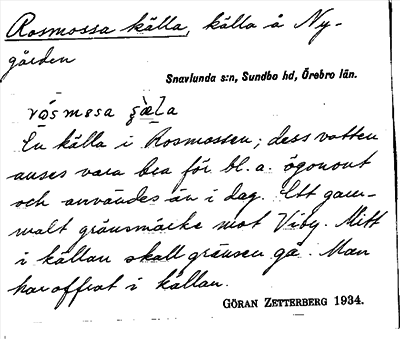 Rosmossa källa, källa å Ny-
gården
Snavlunda s:n, Sundbo hd, Örebro län.
rósmɷsa ʂæla
En källa i Rosmossen; dess vatten
anses vara bra för bl. a. ögonont
och användes än i dag. Ett gam-
malt gränsmärke mot Viby. Mitt
i källan skall gränsen gå. Man
har offrat i källan.
GÖRAN ZETTERBERG 1934.